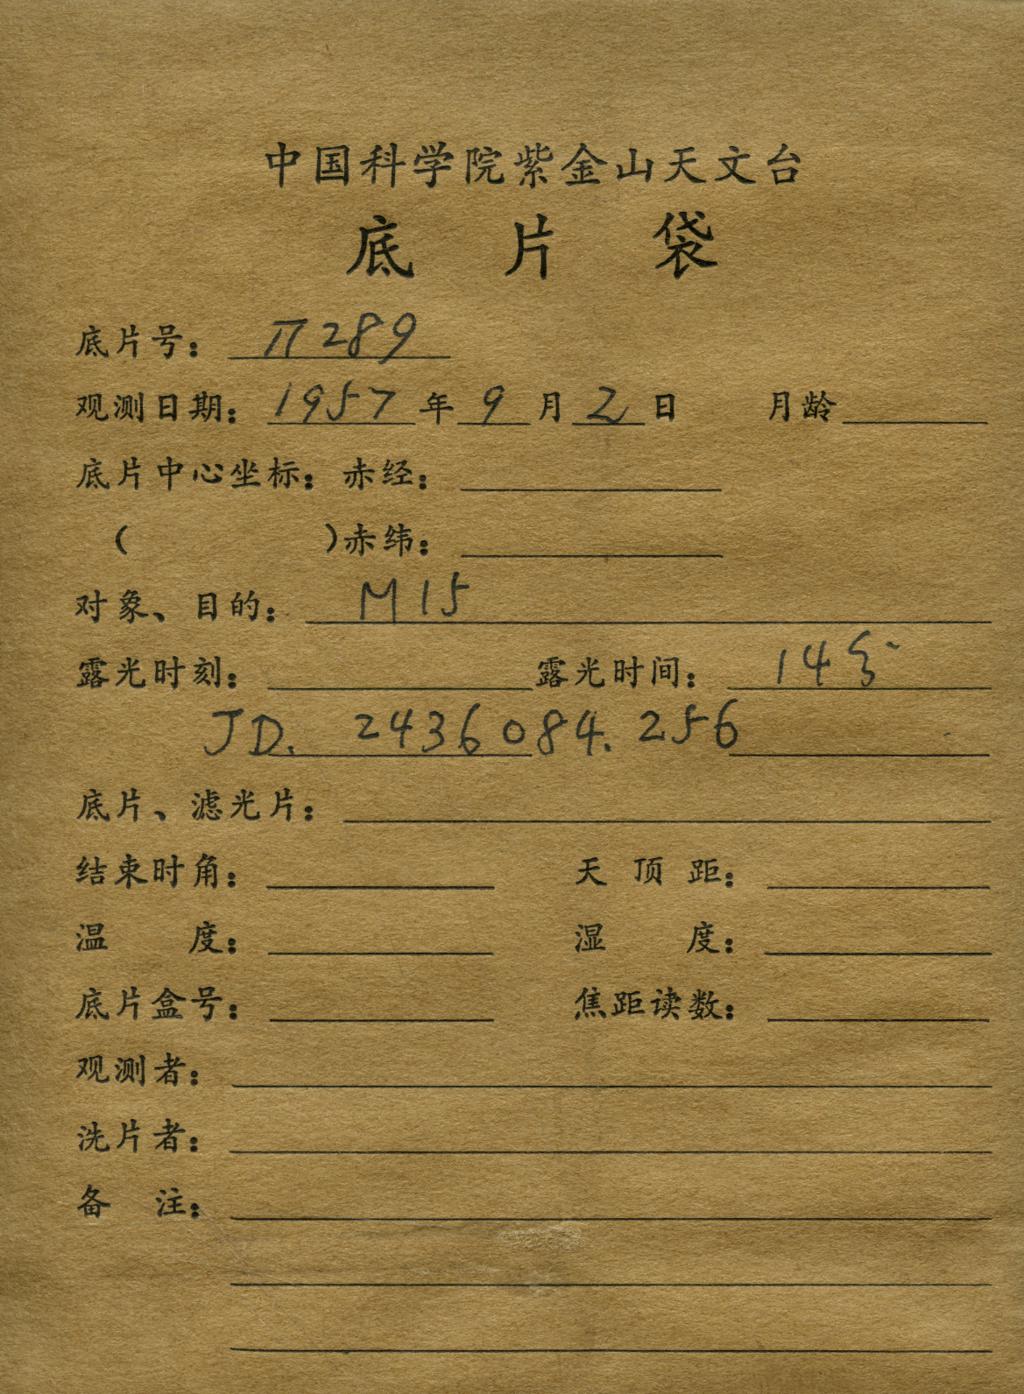 中国科学院紫金山天文台
底片袋
底片号： Π289
观测日期： 1957年9月2日 月龄
底片中心坐标：赤经：
( )赤纬：
对象、目的： M15
露光时刻： 露光时间： 14分
JD. 2436084.256
底片、滤光片：
结束时角： 天顶距：
温度： 湿度：
底片盒号： 焦距读数：
观测者：
洗片者：
备注：